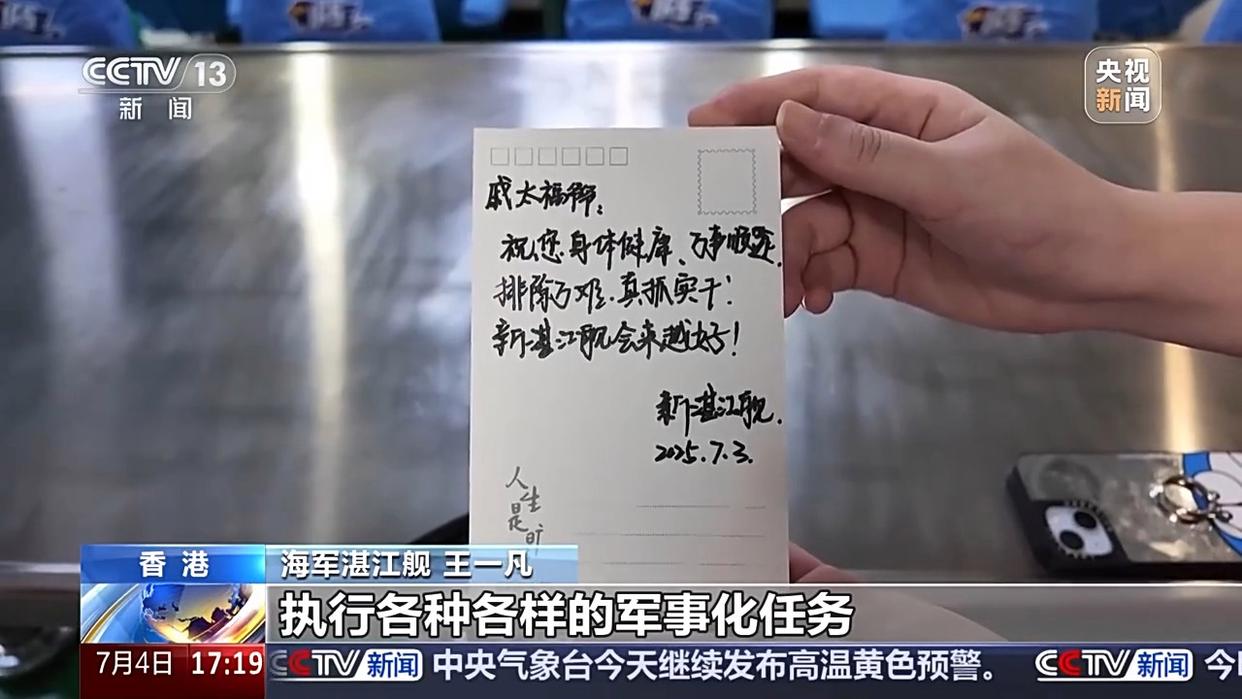 CCTV 13
新闻
央视
新闻
戚太福称:
祝您身体健康、万事顺意.
排除万难.真抓实干!
新湛江舰会来越好!
新湛江舰.
2025.7.3.
人生是旷
香港
海军湛江舰 王一凡
执行各种各样的军事化任务
7月4日 17:19
CCTV新闻 中央气象台今天继续发布高温黄色预警。 CCTV新闻